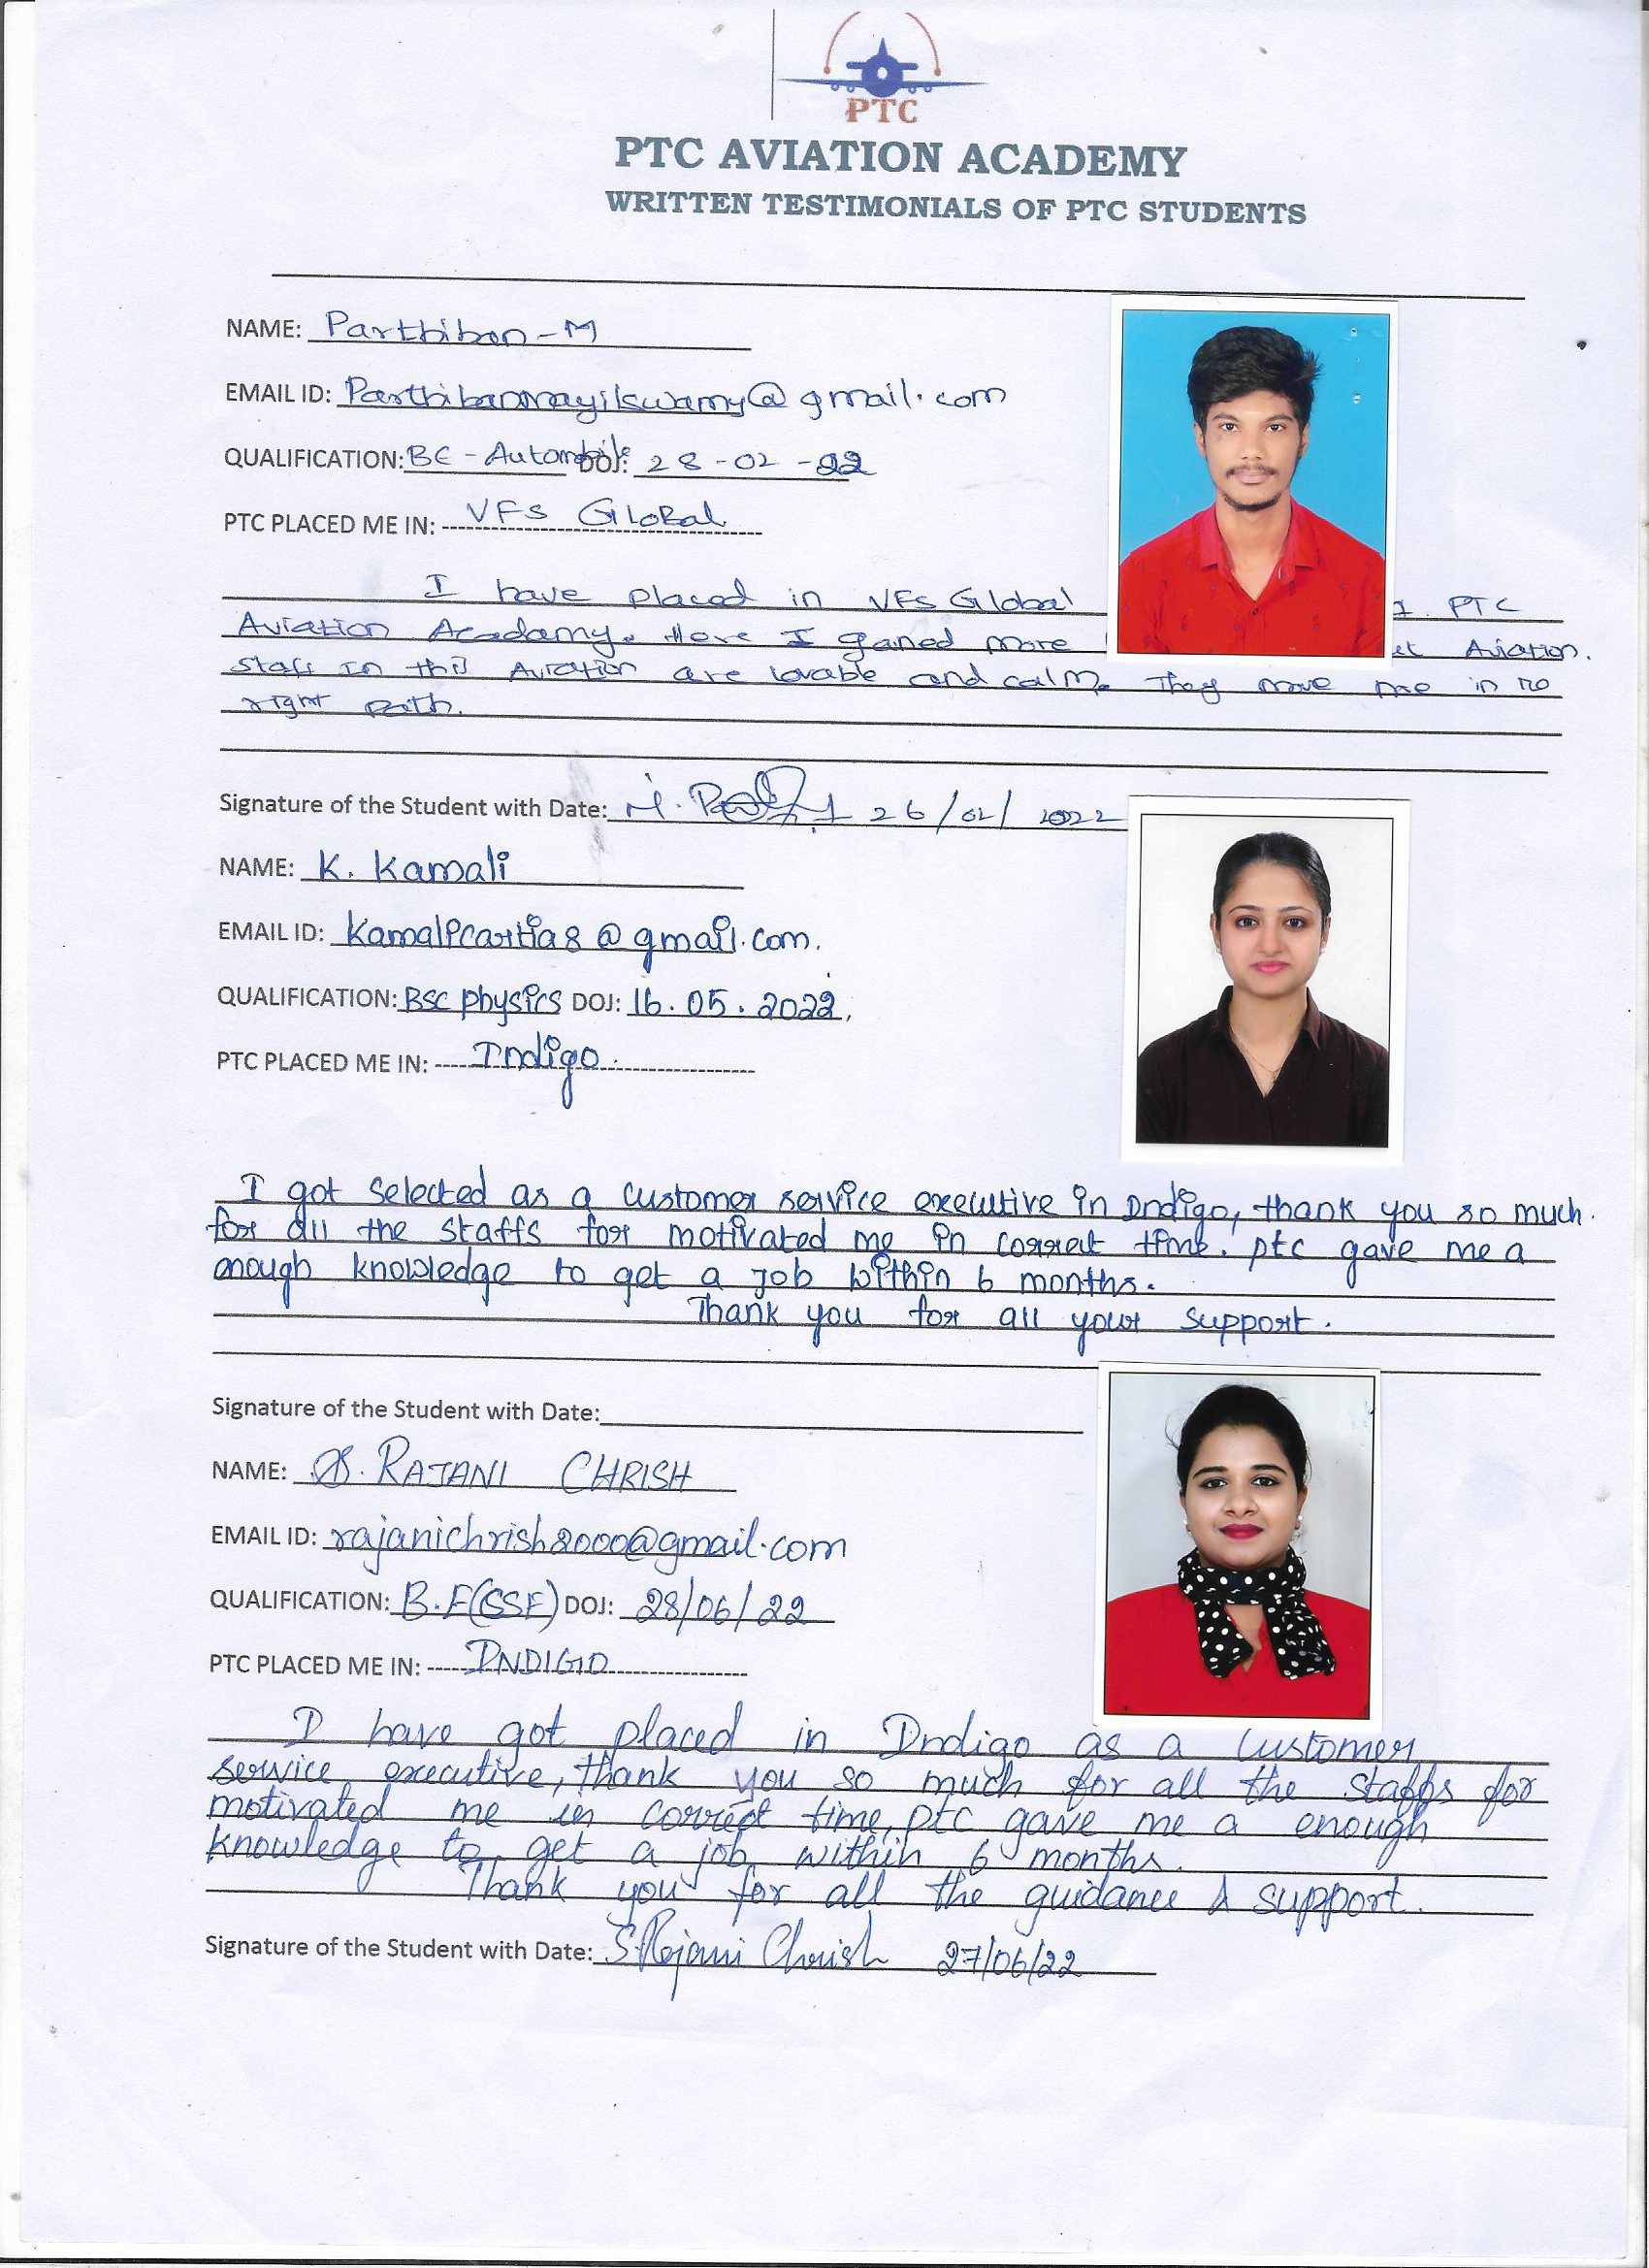 PTC
PTC AVIATION ACADEMY
WRITTEN TESTIMONIALS OF PTC STUDENTS
NAME: Parthiban-M
EMAIL ID: Parthibanmayilswamy@gmail.com
QUALIFICATION: BE - Automobile DOJ: 28-02-22
PTC PLACED ME IN: VFS Global
I have placed in VFS Global PTC
Aviation Academy. Here I gained more Aviation.
Staff in this Aviation are lovable and calm. They move me in to
right path.
Signature of the Student with Date: 26/02/2022
NAME: K. Kamali
EMAIL ID: @gmail.com.
QUALIFICATION: BSC physics DOJ: 16.05.2022.
PTC PLACED ME IN: Indigo.
I got selected as a customer service executive in Indigo, thank you so much.
for all the staffs for motivated me in correct time. ptc gave me a
enough knowledge to get a job within 6 months.
Thank you for all your support.
Signature of the Student with Date:
NAME: S. RAJANI CHRISH
EMAIL ID: rajanichrish2000@gmail.com
QUALIFICATION: B.E(CSE) DOJ: 28/06/22
PTC PLACED ME IN: INDIGO
I have got placed in Indigo as a customer
service executive, thank you so much for all the staffs for
motivated me in correct time, ptc gave me a enough
knowledge to get a job within 6 months.
Thank you for all the guidance & support.
Signature of the Student with Date: S. Rajani Chrish 27/06/22